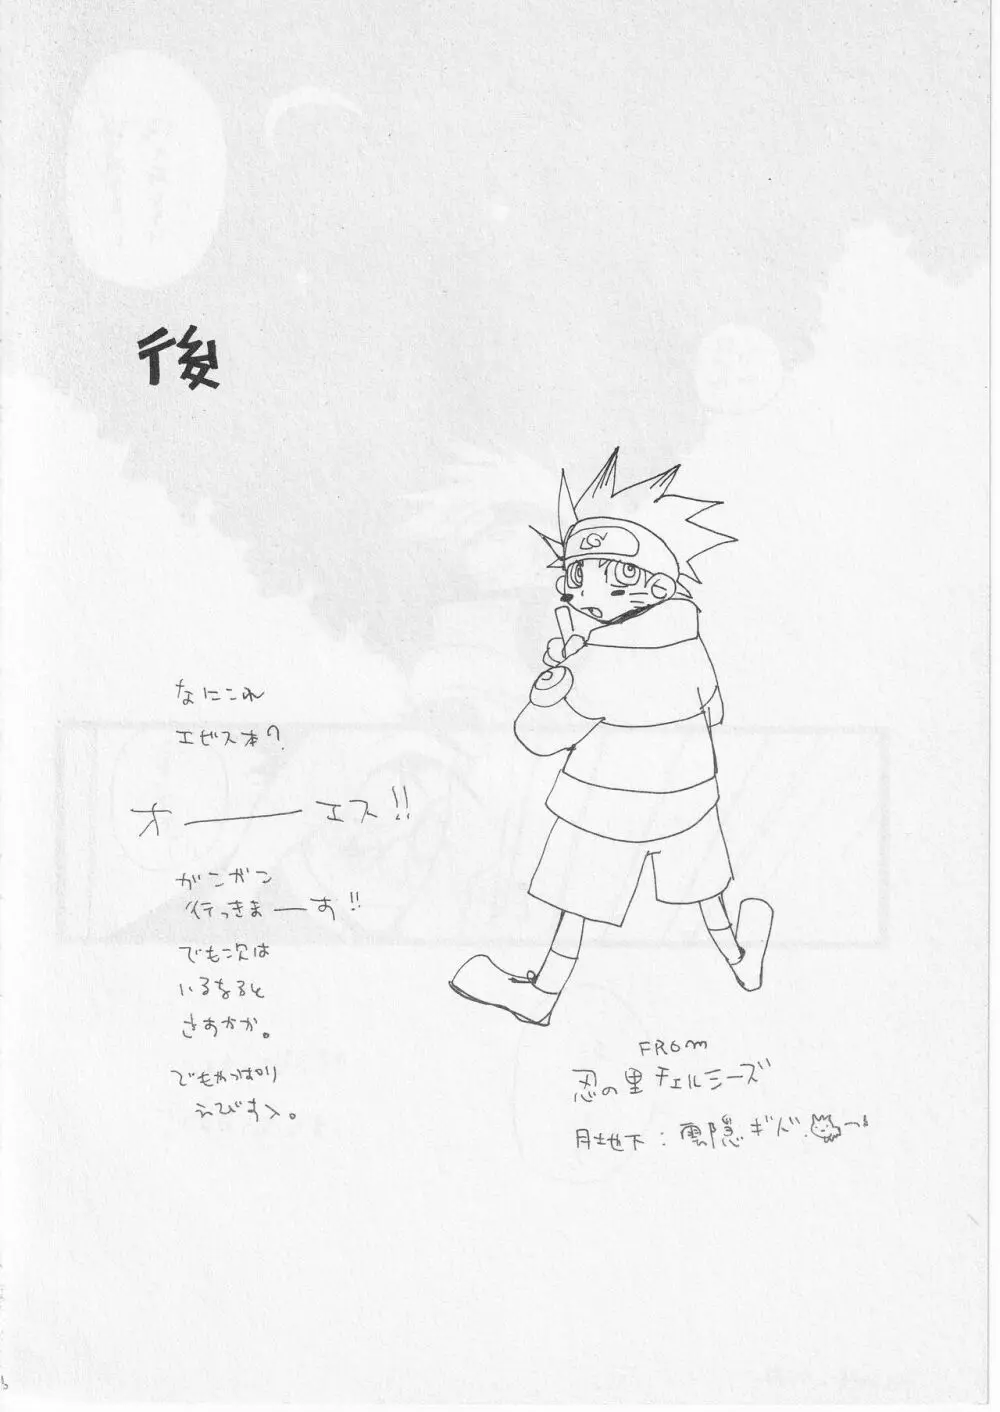 後
なにこれ
エビス本?
オ――エス!!
ガンガン
行っきまーす!!
でも次は
いるかると
さすがか。
でもやっぱり
えびすヽ。
FROM
忍の里チェルシーズ
月地下:雲隠ギド